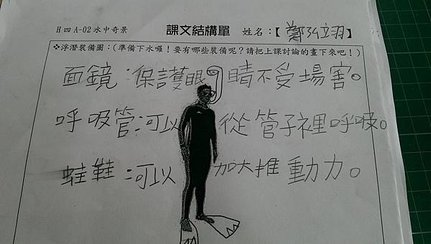 H四A-02水中奇景 課文結構單 姓名：【鄭弘翊】
❖浮潛裝備圖：(準備下水囉！要有哪些裝備呢？請把上課討論的畫下來吧！)
面鏡：保護眼睛不受場害。
呼吸管：可以從管子裡呼吸。
蛙鞋：可以加大推動力。